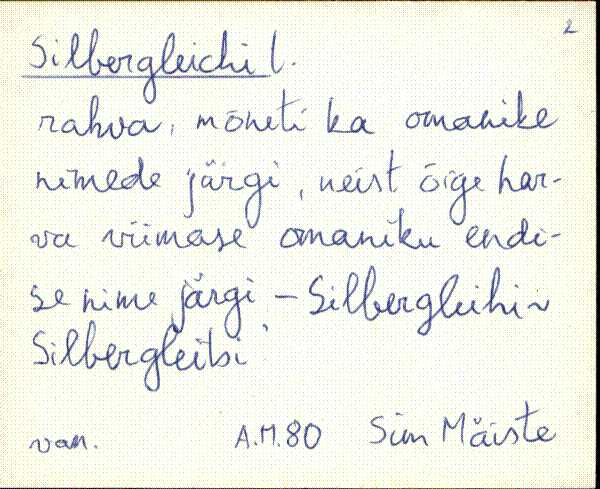 2
Silbergleichi l.
rahva, mõneti ka omanike
nimede järgi, neist õige har-
va viimase omaniku endi-
se nime järgi – Silbergleihi ~
Silbergleitsi
van. A.M.80 Siim Mäiste